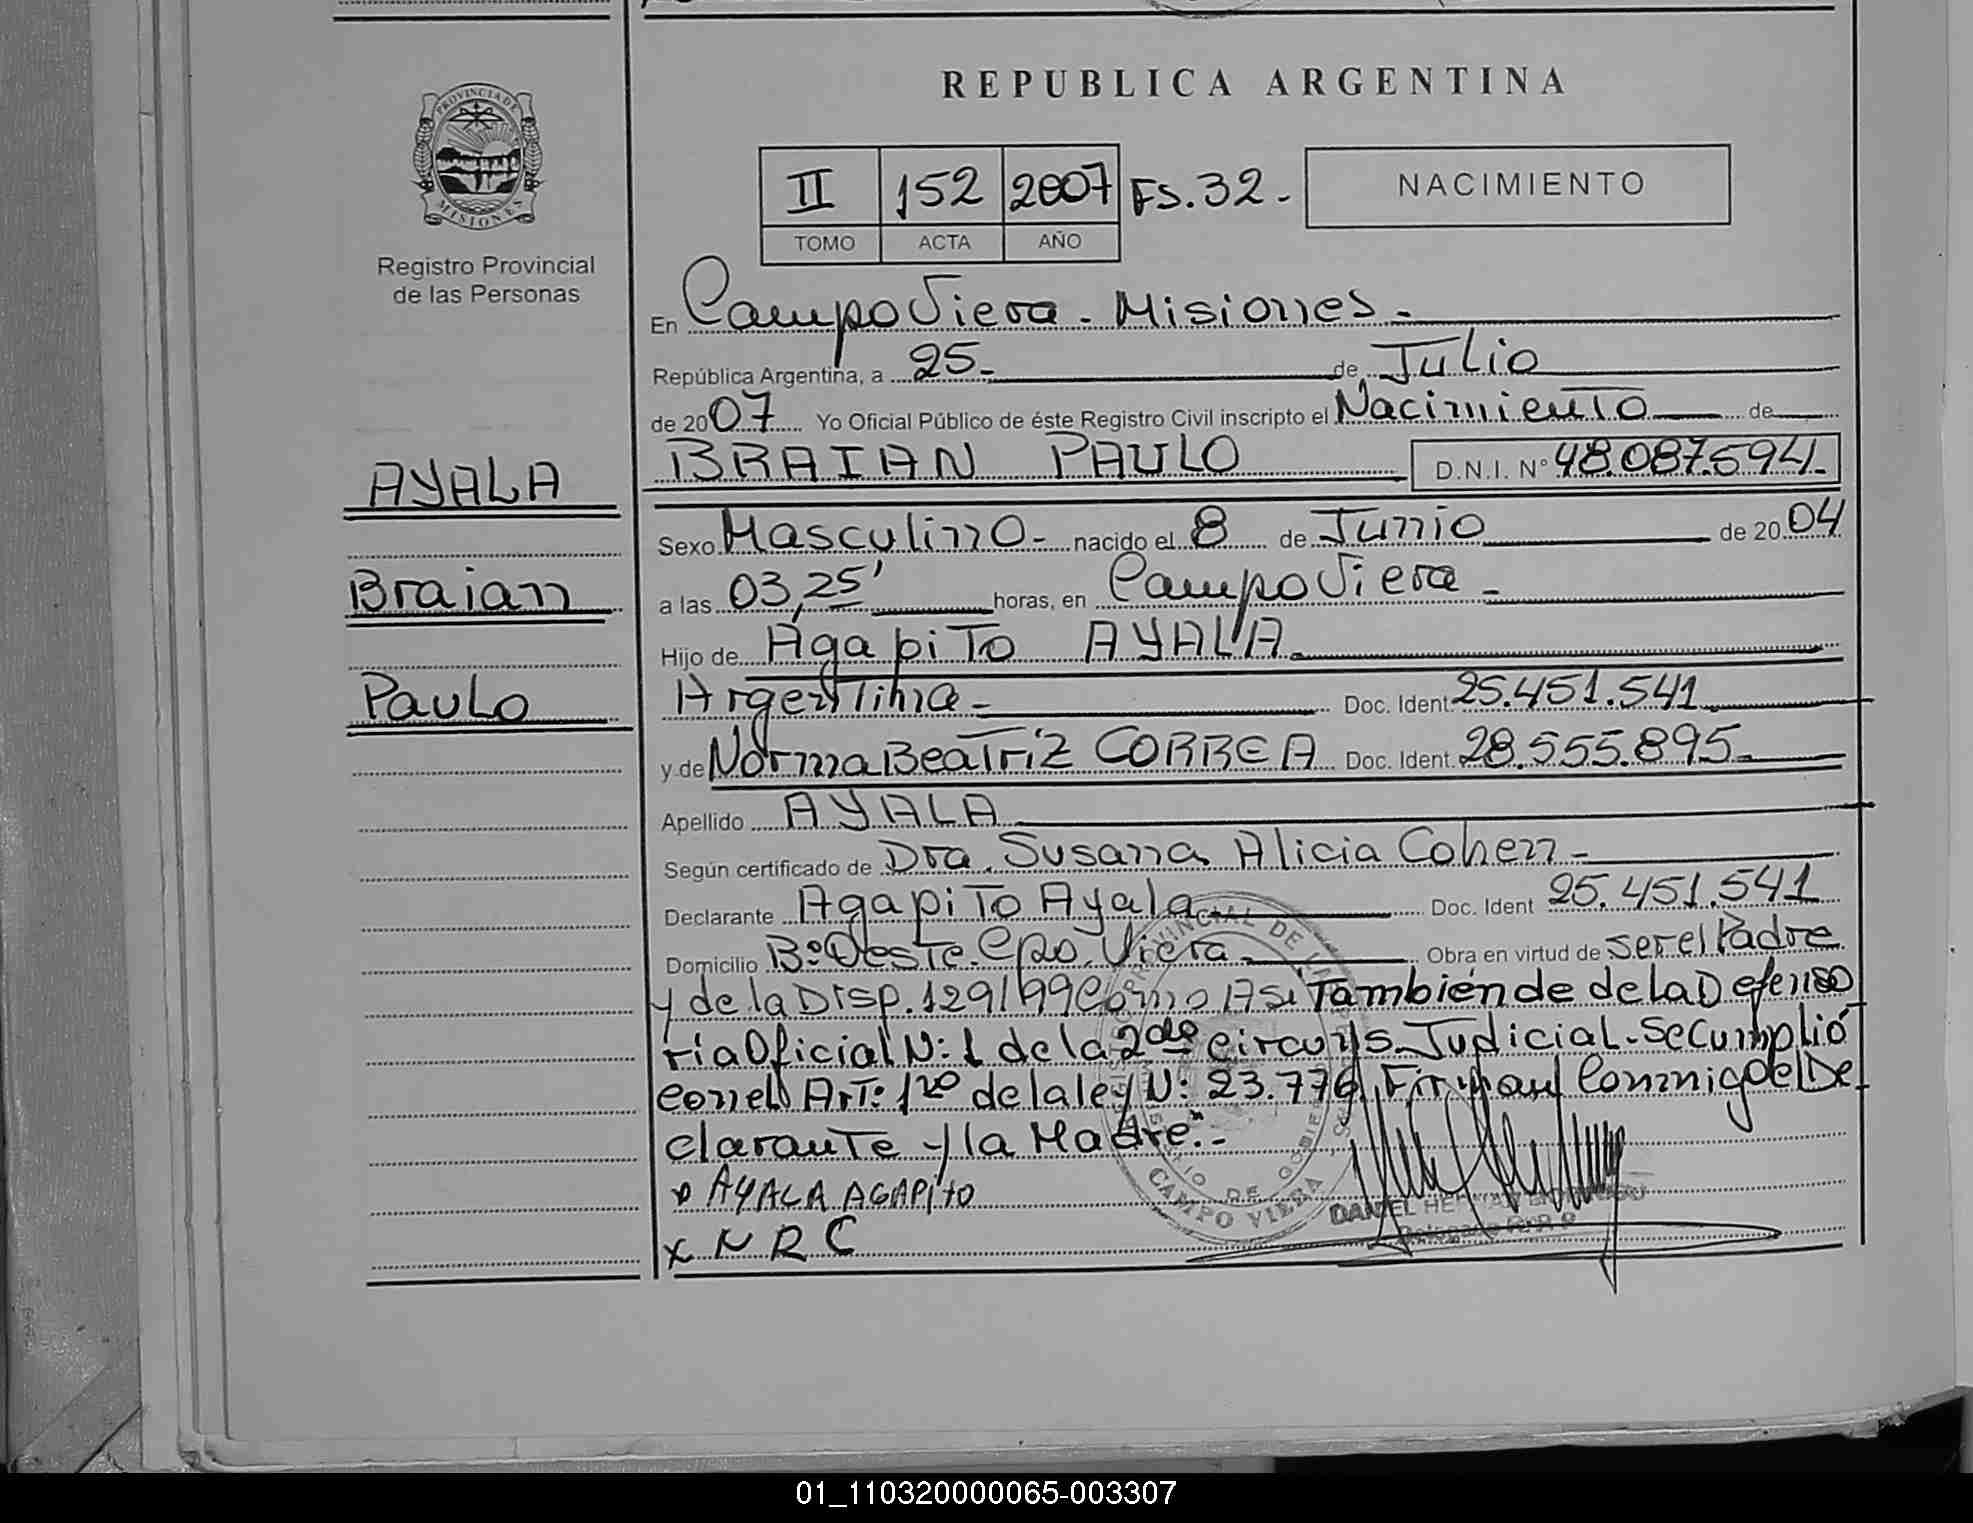 REPUBLICA ARGENTINA
PROVINCIA DE MISIONES
Registro Provincial
de las Personas
II 152 2007 FS.32.-
TOMO ACTA AÑO
NACIMIENTO
En Campo Viera - Misiones.-
República Argentina, a 25.- de Julio
de 2007 Yo Oficial Público de éste Registro Civil inscripto el Nacimiento de
AYALA
BRAIAN PAULO D.N.I. N° 48.087.594.-
Sexo Masculino.- nacido el 8 de Junio de 2004
Braian
a las 03,25' horas, en Campo Viera.-
Hijo de Agapito AYALA.-
Paulo
Argentina.- Doc. Ident. 25.451.541.-
y de Norma Beatriz CORREA Doc. Ident. 28.555.895.-
Apellido AYALA
Según certificado de Dra. Susana Alicia Cohen.-
Declarante Agapito Ayala Doc. Ident 25.451.541
Domicilio B° Oeste. Cpo. Viera.- Obra en virtud de ser el Padre
y de la Disp. 129/99 Como Asi También de de la Defenso
ría Oficial N: 1 de la 2da circuns. Judicial. Se Cumplió
con el Art: 1ro de la ley N: 23.776. Firman Conmigo el De
clarante y la Madre.-
AYALA AGAPito
x N R C
CAMPO VIERA
DANIEL
Delegado R.P.P
01_110320000065-003307